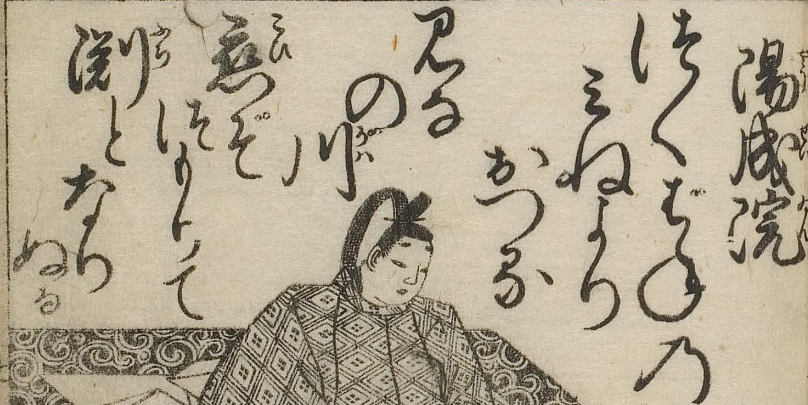 陽成院
つくばねの
みねより
おつる
みな
の
川
恋ぞ
つもりて
渕となり
ぬる